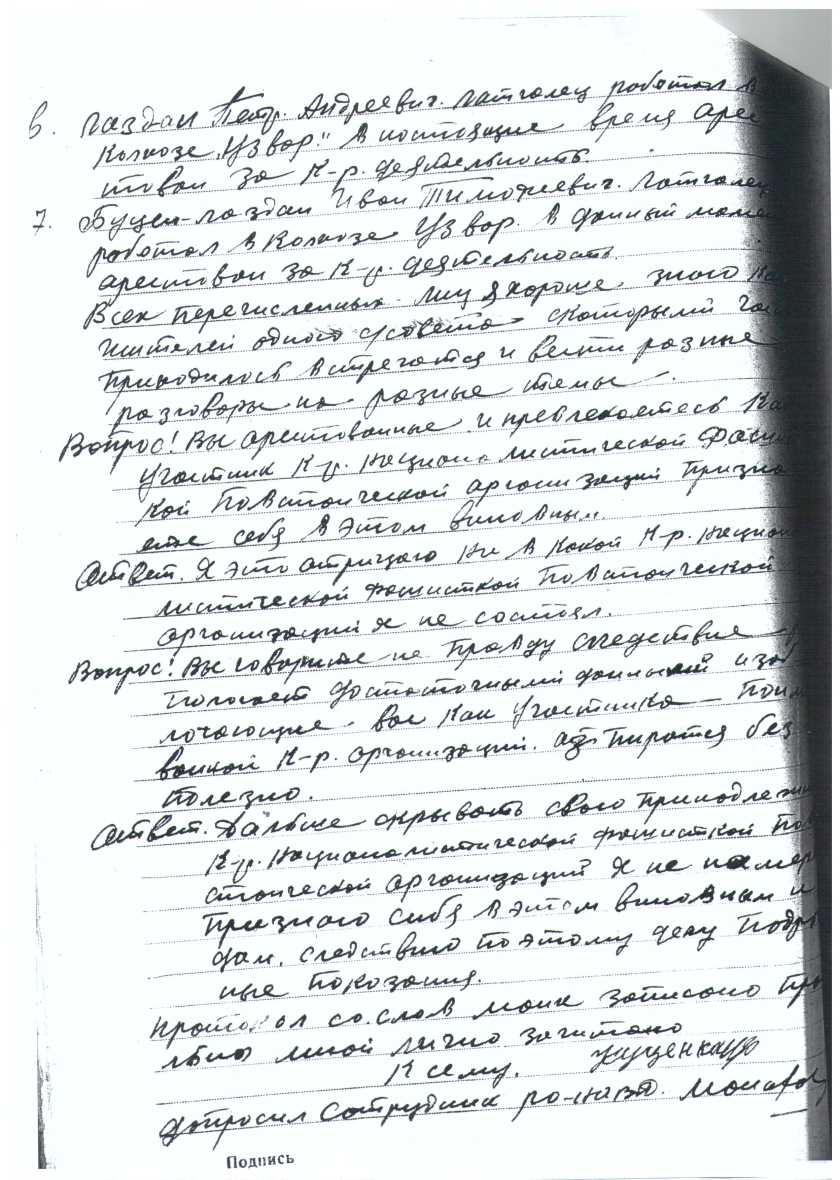 6. Лаздан Петр. Андреевич. Латголец работал в
Колхозе „Узвор". В настоящие время арес
тован за К-р. деятельность.
7. Буцен-лаздан Иван Тимофеевич. Латголец
работал в Колхозе Узвор. В данный момен
арестован за К-р. деятельность.
Всех перечисленных лиц я хороше знаю Ка
жителей одного с/совета с которыми час
приходилось встречатся и вести разные
разговоры на разные темы.
Вопрос! Вы арестованные и превлекаетесь Ка
участник К-р. националистической Фашис
кой повстонческой организаций призна
ете себя в этом виновным.
Ответ. Я это отрицаю не в какой К-р. национ
листической фашисткой повстонческой
организаций я не состоял.
Вопрос! Вы говорите не правду следствие
пологает достаточными данными изоб
лочающие вас как участника
ванной К-р. организаций. Пиратся без
полезно.
Ответ. Дальше скрывать свою приналежн
К-р. националистической фашисткой пов
стонческой организаций я не намер
признаю себя в этом виновным и
дам следствию по этому делу подро
ные показания.
протокол со слов моих записано пра
льно мной лично зачитано
К сему.
допросил сотрудник ро-нквд.
Подпись